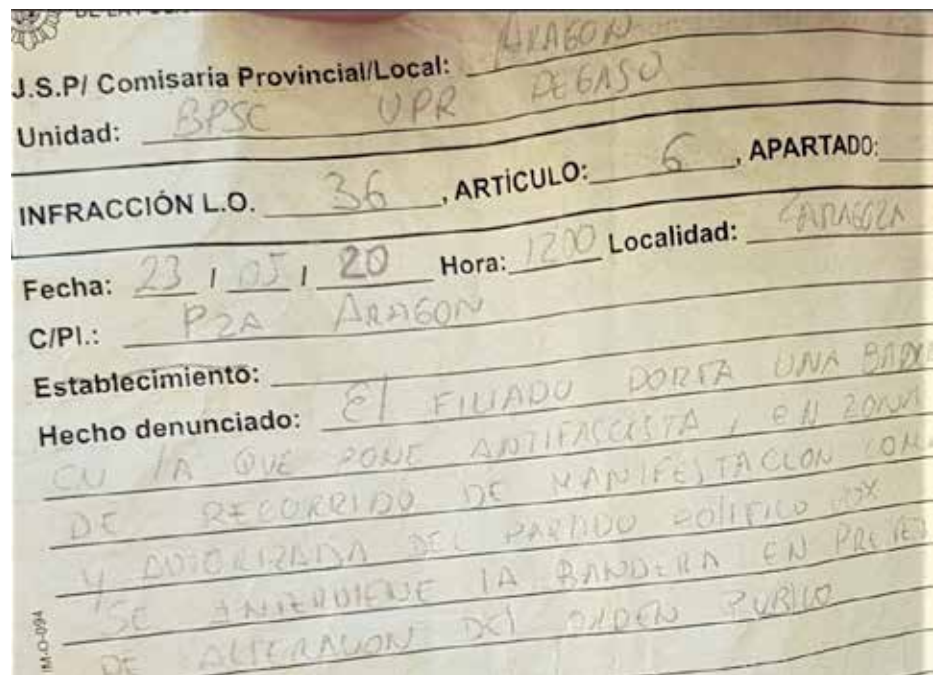 DE LA POLI
J.S.P/ Comisaria Provincial/Local: ARAGON
Unidad: BPSC UPR PEGASO
INFRACCIÓN L.O. 36, ARTÍCULO: 6, APARTADO:
Fecha: 23 / 05 / 20 Hora: 1200 Localidad: ZARAGOZA
C/Pl.: PZA ARAGON
Establecimiento:
Hecho denunciado: El FILIADO PORTA UNA
EN lA QUE PONE ANTIFASCISTA, EN ZONA
DE RECORRIDO DE MANIFESTACION
Y AUTORIZADA DEL PARTIDO POlITICO VOX
SE INTERVIENE lA BANDERA EN
DE ALTERACION DEl ORDEN PUBLICO
IM-O-094